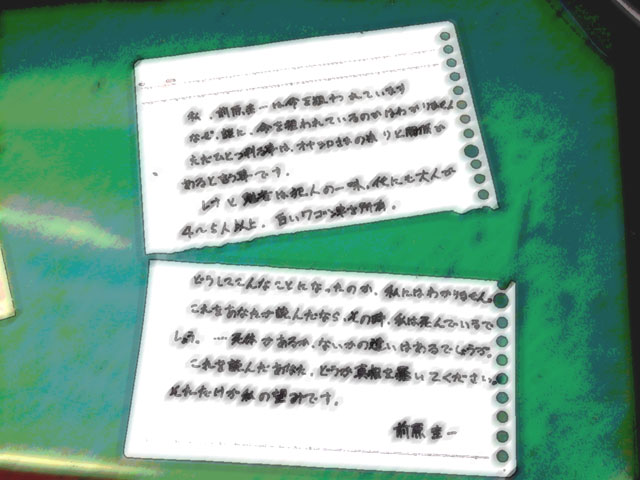 私、前原圭一は命を狙われています
なぜ、誰に、命を狙われているのかはわかりません
ただひとつ判る事は、オヤシロさまの祟りと関係が
あると言う事です。
レナと魅音は犯人の一味。他にも大人が
4〜5人以上。白いワゴン車を所有。
どうしてこんなことになったのか、私にはわかりません。
これをあなたが読んだなら、その時、私は死んでいるで
しょう。…死体があるか、ないかの違いはあるでしょうが。
これを読んだあなた。どうか真相を暴いてください。
それだけが私の望みです。
前原圭一